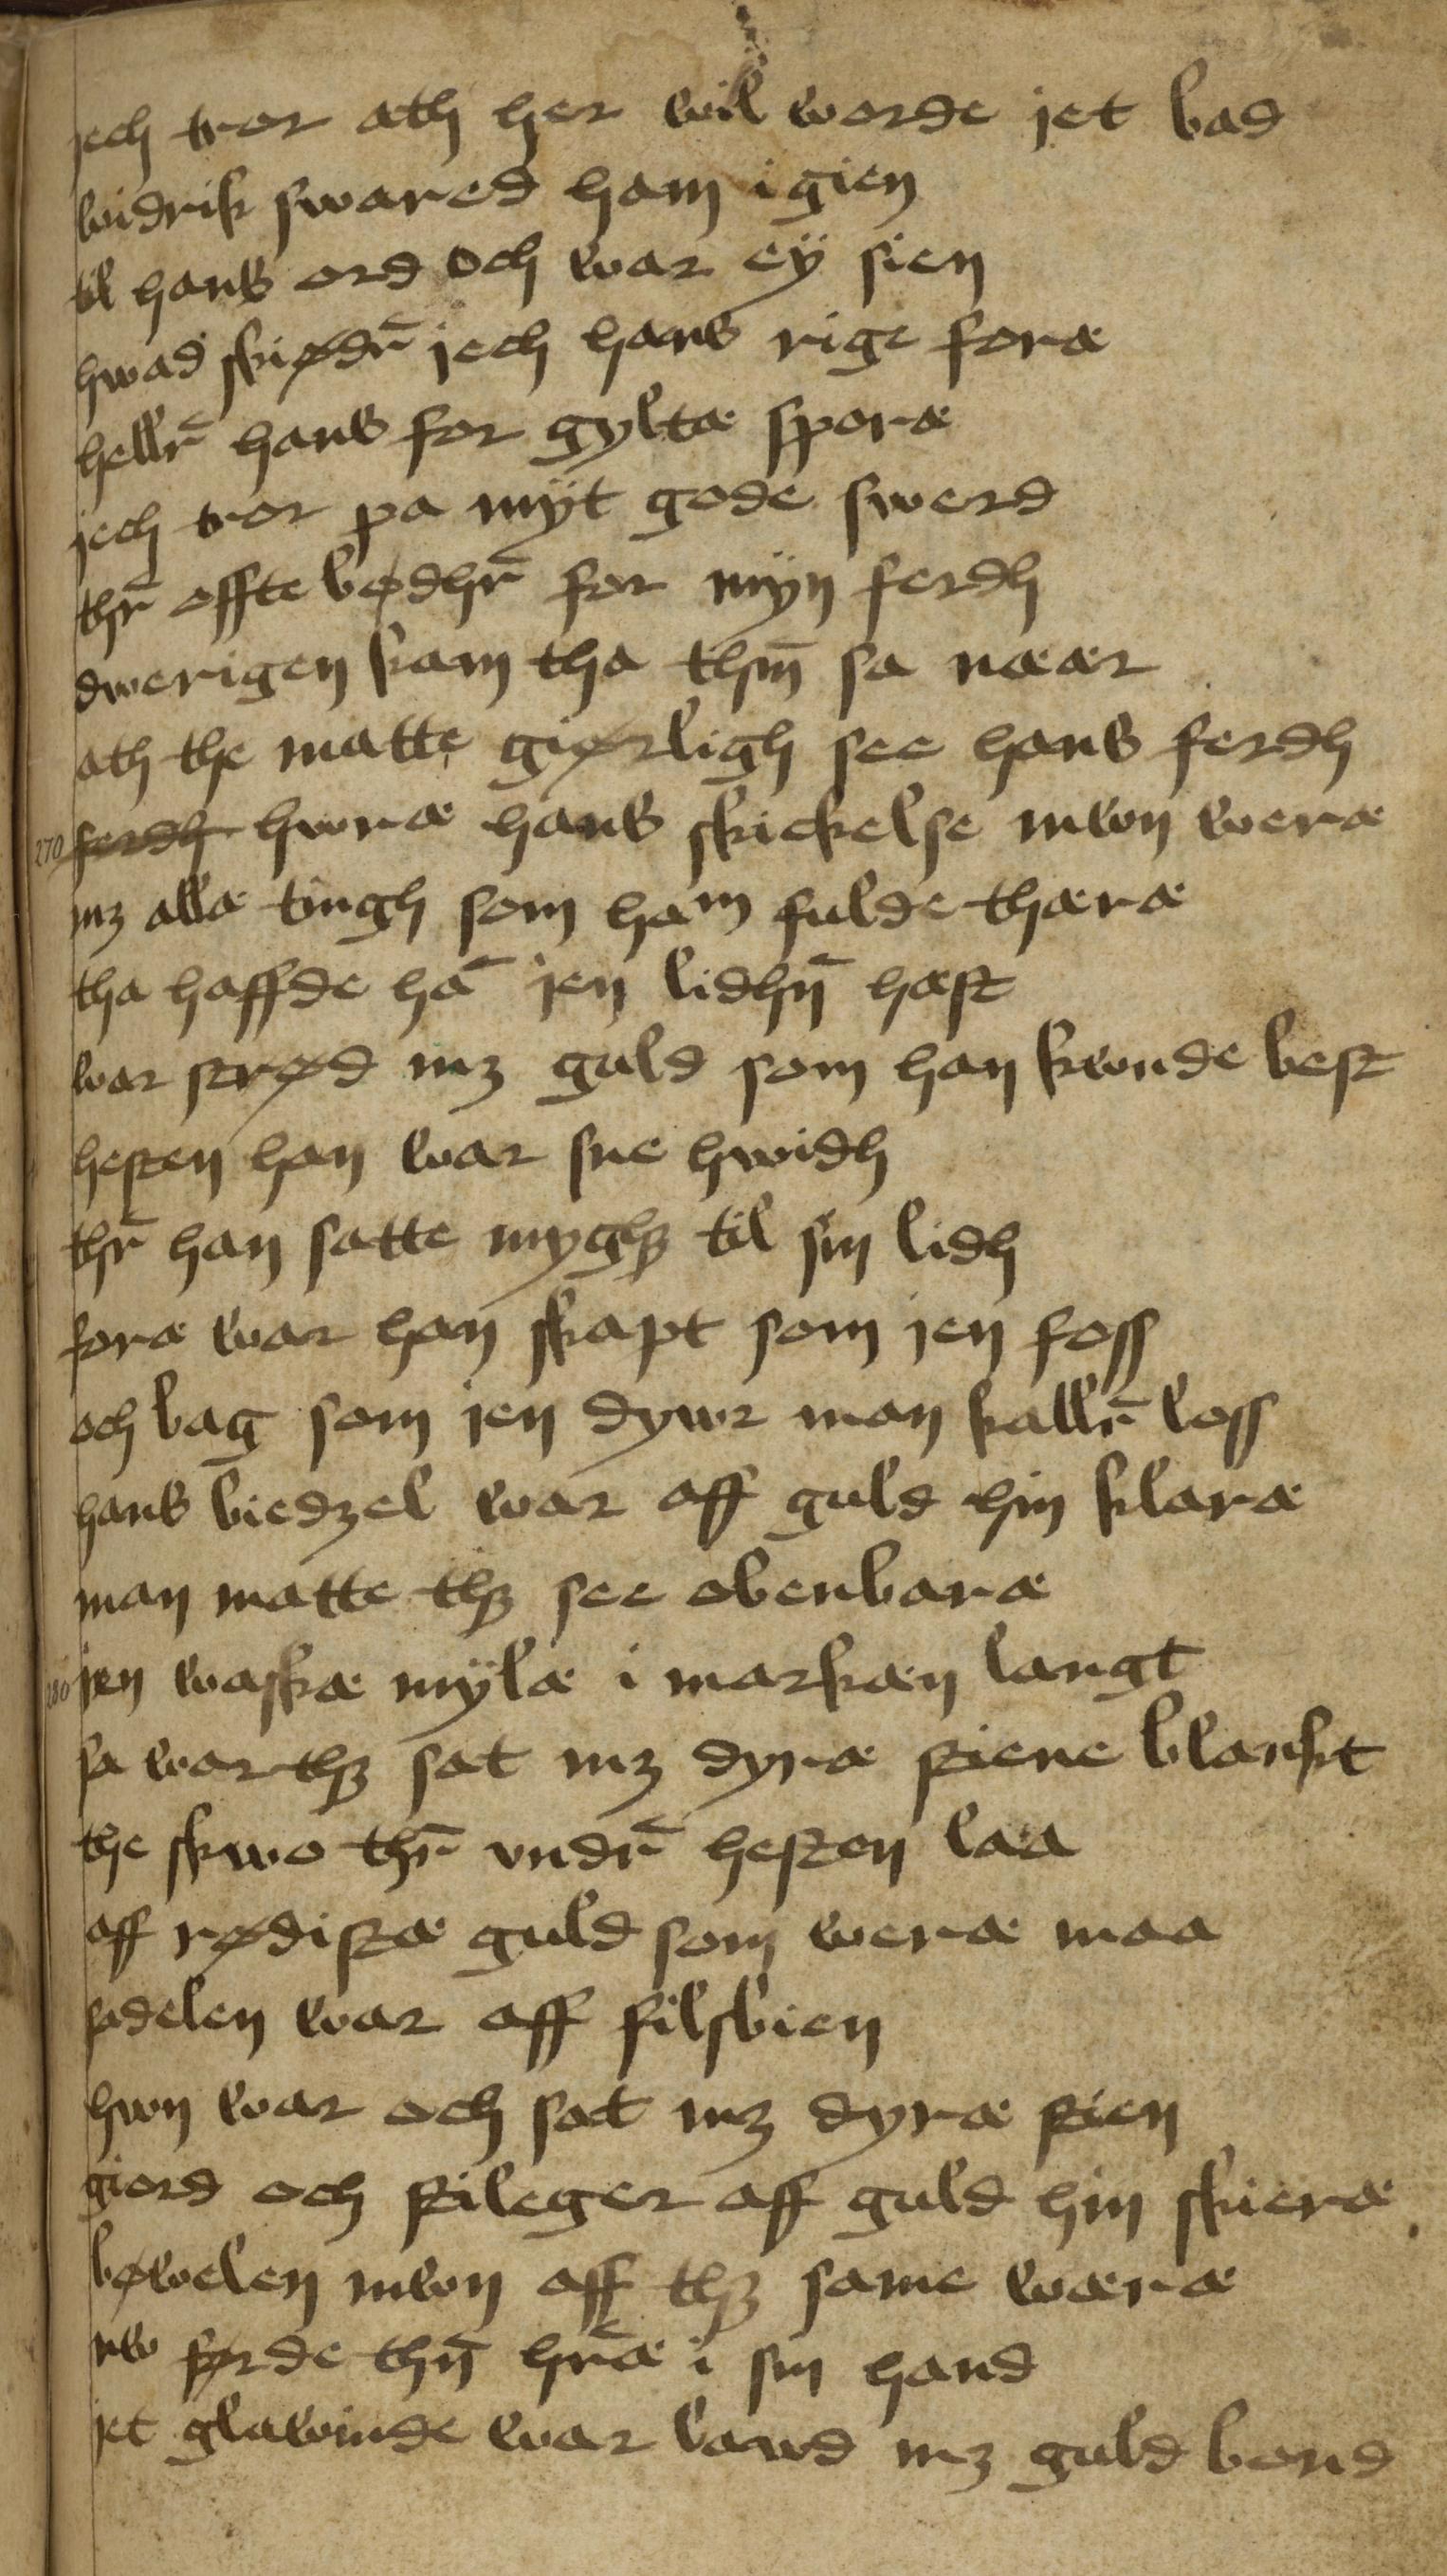 jech tror ath her wil worde jet bad
widrik swared ham igien
til hans ord och war eÿ sien
hwad skiødr̄ jech hans rige foræ
hellr̄ hans for gyltæ sporæ
jech tror pa mÿt gode swerd
thr̄ offte bødhr̄ for mÿn ferdh
dwerigen kam tha thm̄ sa næær
ath the matte giørligh see hans ferdh
270 ferdh hworæ hans skickelse mwn weræ
mꝫ allæ tingh som ham fulde thæræ
tha haffde hā jen lidhn̄ hæst
war strød mꝫ guld som han kwnde best
hesten han war sne hwidh
thr̄ han satte myghꝫ til sin lidh
foræ war han skapt som jen foss
och bag som jen dywr man kallr̄ loss
hans biedzel war aff guld hin klaræ
man matte thꝫ see obenbaræ
280 jen waskæ mÿlæ i markæn langt
sa war thꝫ sat mꝫ dyræ stene blankt
the skwo thr̄ vndr̄ hesten laa
aff rødistæ guld som weræ maa
sadelen war aff filsbien
hwn war och sat mꝫ dyræ stien
giord och stileger aff guld hin skieræ
bøwelen mwn aff thꝫ same wæræ
nw førde thn̄ hr̄æ i sin hand
jet glawinde war lawd mꝫ guld bond